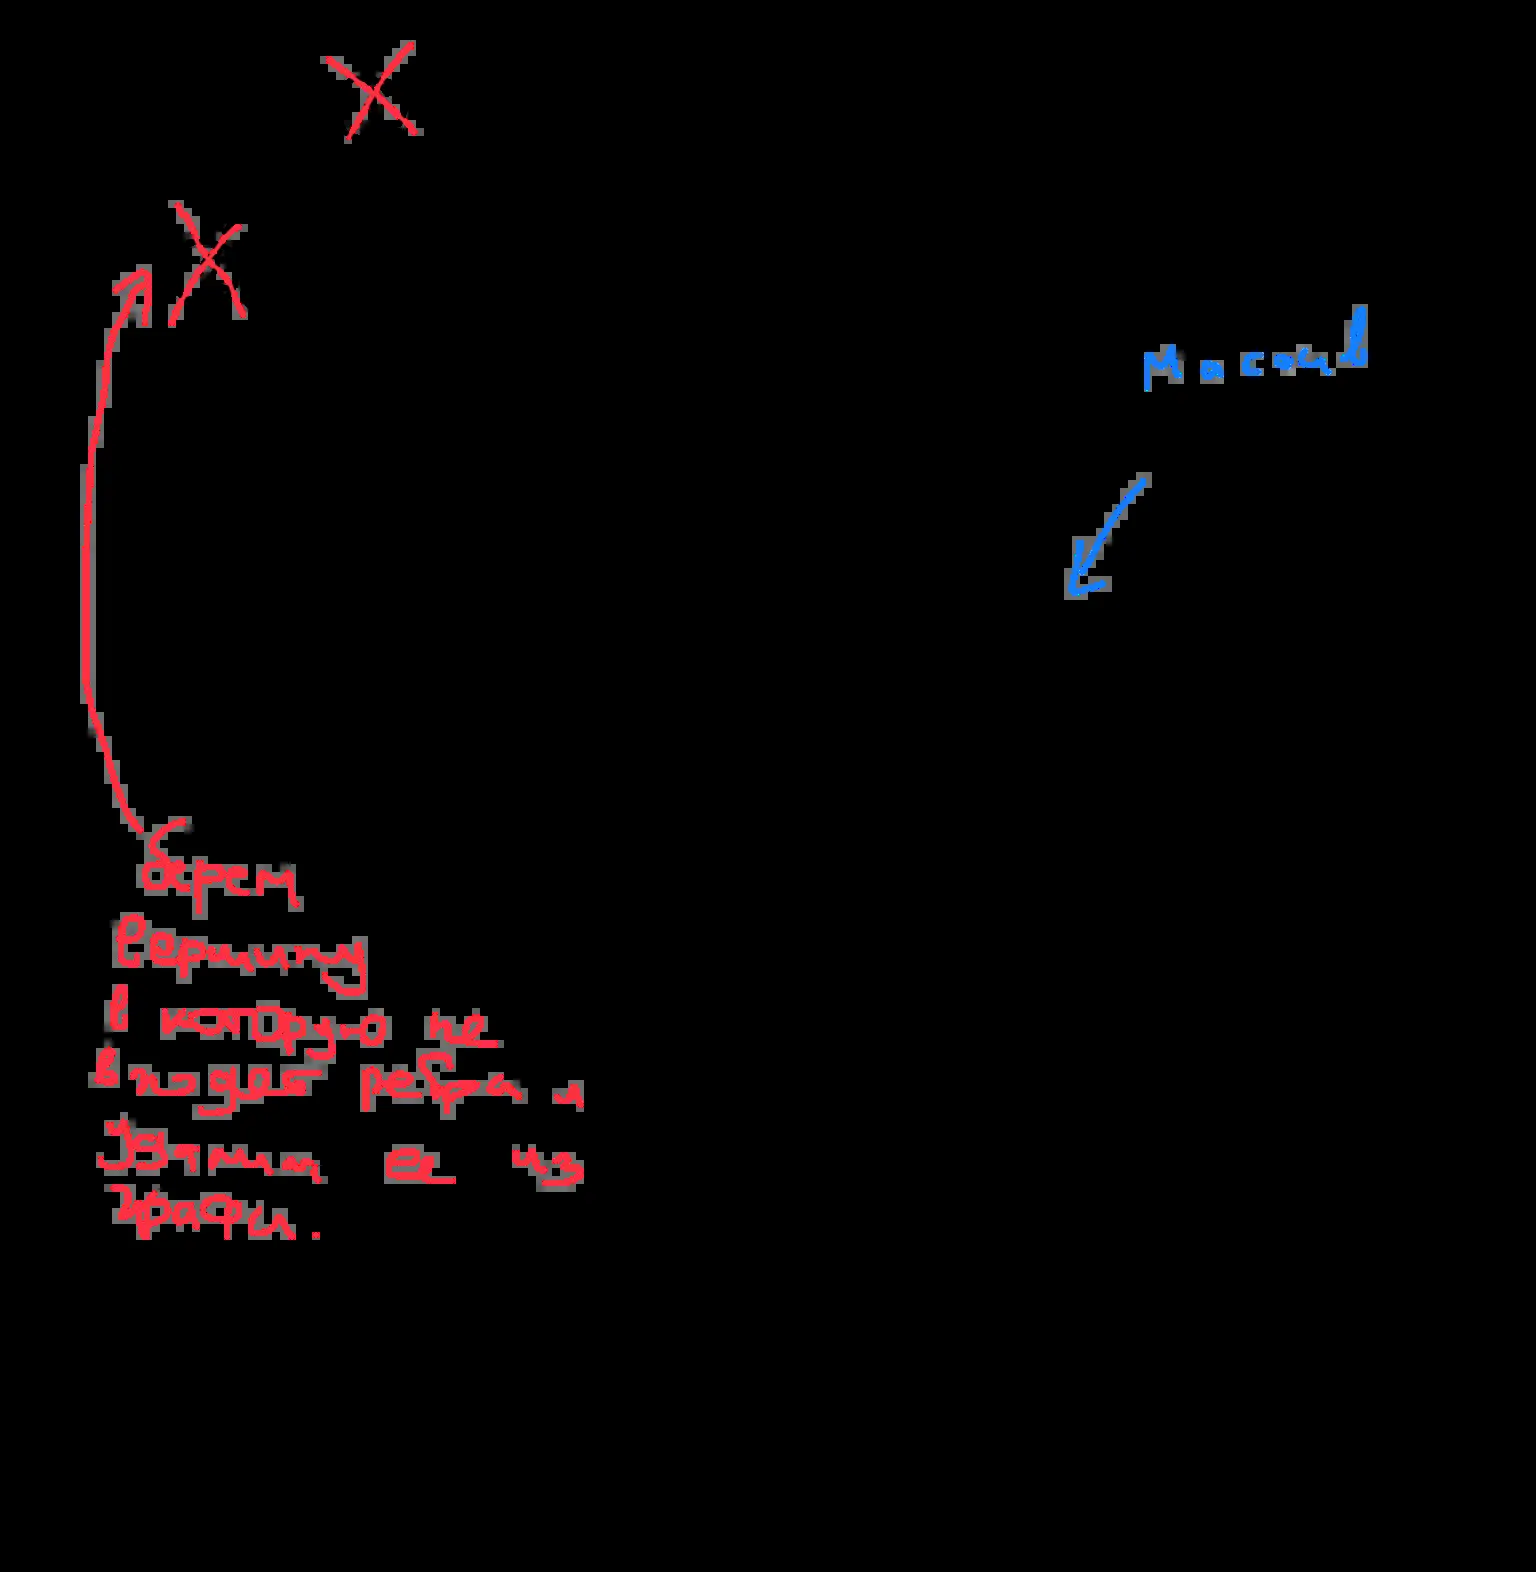 масив
берем
вершину
в которую не
входет ребра и
удалим ее из
графа.